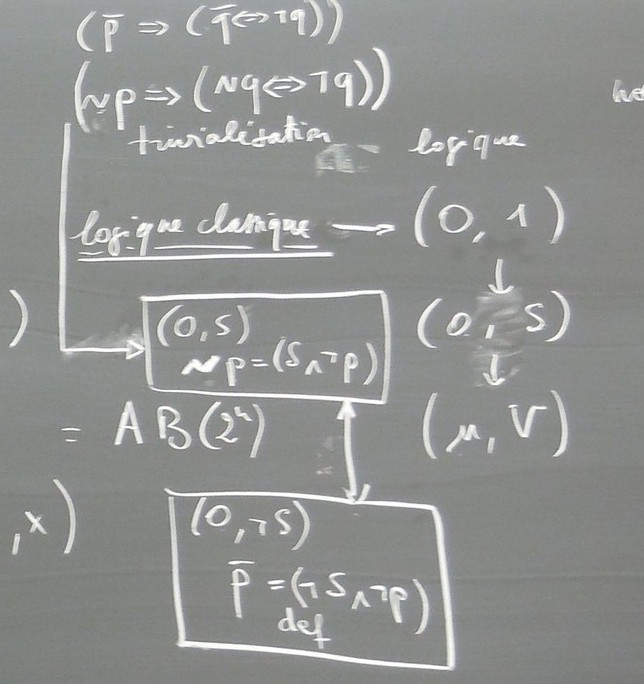 (p̄ => (q̄ <=> ¬q))
(Np => (Nq <=> ¬q))
trivialisation
logique
logique classique → (0, 1)
↓
(0, S)
Np = (S ∧ ¬p)
(0, S)
↓
= AB(2ⁿ)
(μ, V)
,x)
(0, ¬S)
p̄ = (¬S ∧ ¬p)
def